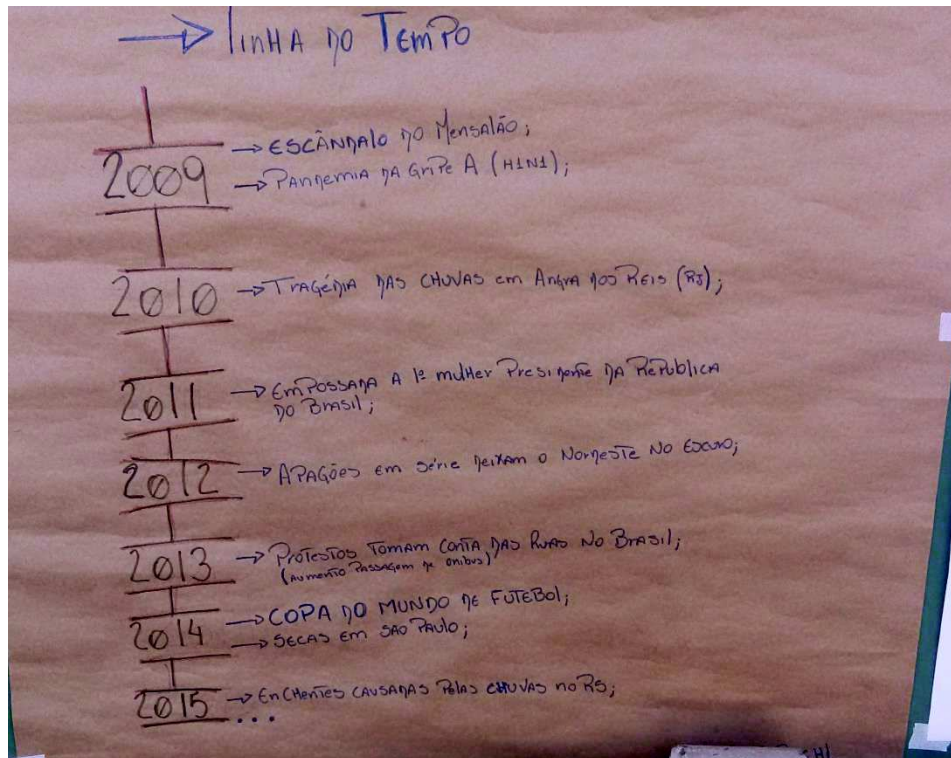 → LINHA DO TEMPO
2009 → ESCÂNDALO DO MENSALÃO;
→ PANDEMIA DA GRIPE A (H1N1);
2010 → TRAGÉDIA DAS CHUVAS EM ANGRA DOS REIS (RJ);
2011 → EMPOSSADA A 1ª MULHER PRESIDENTE DA REPUBLICA
DO BRASIL;
2012 → APAGÕES EM SÉRIE DEIXAM O NORDESTE NO ESCURO;
2013 → PROTESTOS TOMAM CONTA DAS RUAS NO BRASIL;
(AUMENTO PASSAGEM DE ONIBUS)
2014 → COPA DO MUNDO DE FUTEBOL;
→ SECAS EM SAO PAULO;
2015 → ENCHENTES CAUSADAS PELAS CHUVAS NO RS;
...